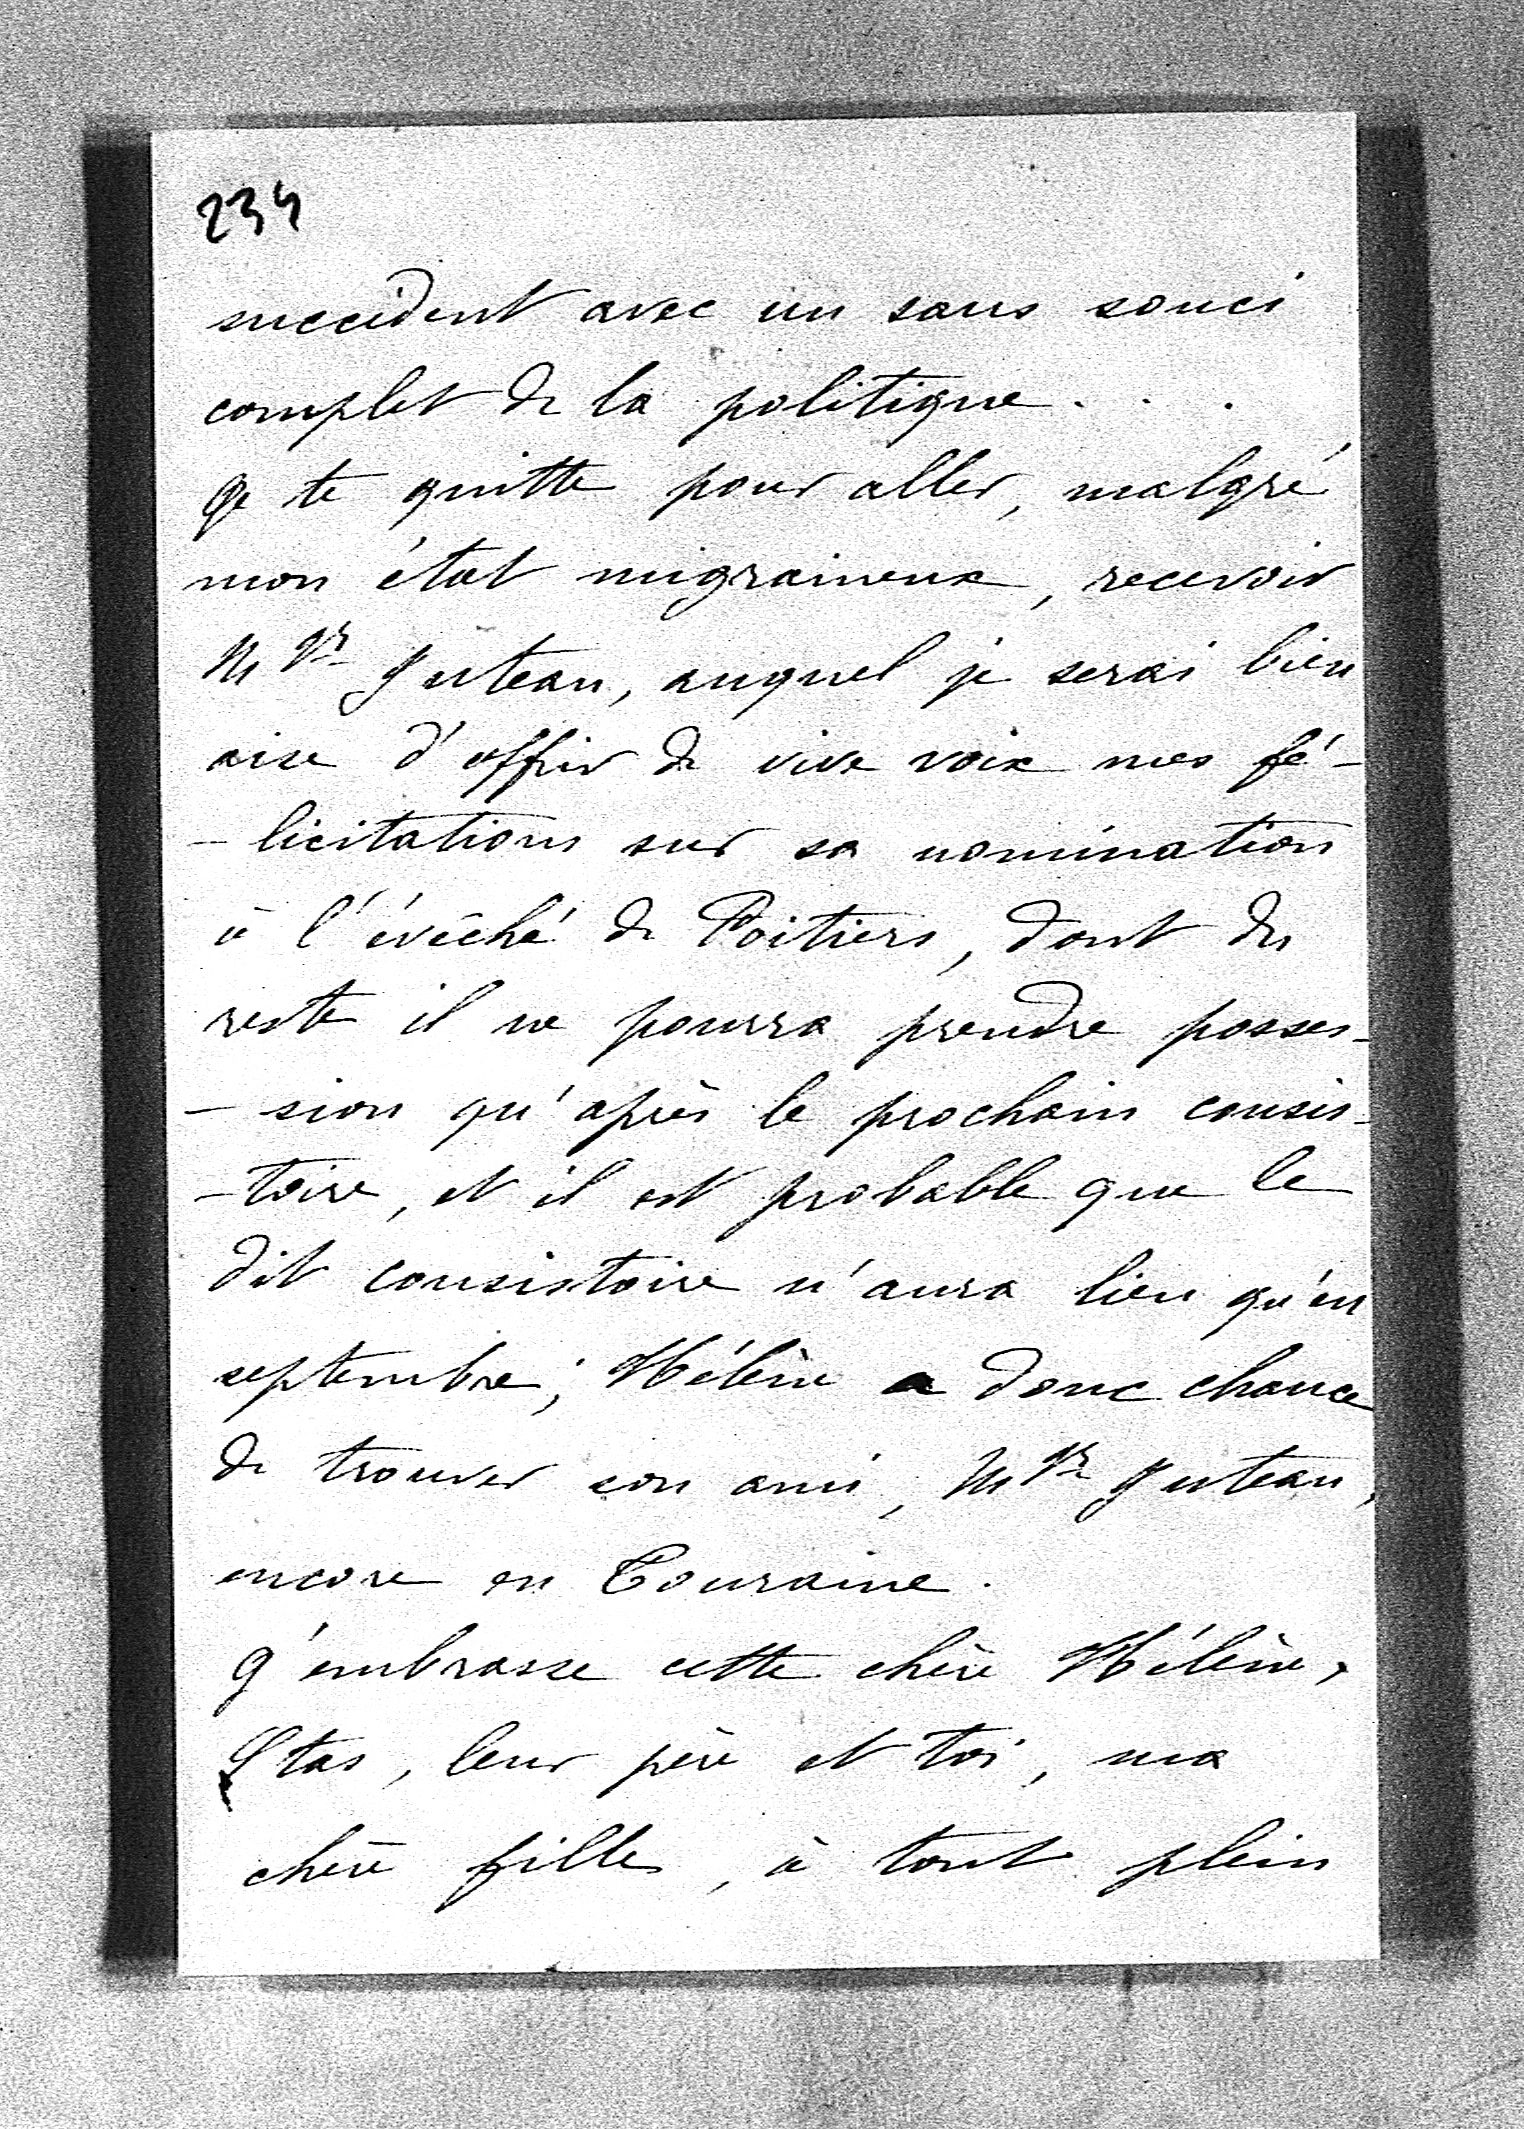 234
succèdent avec un sans souci
complet de la politique. . .
Je te quitte pour aller, malgré
mon état migraineux, recevoir
Mgr Juteau, auquel je serai bien
aise d'offrir de vive voix mes fé-
-licitations sur sa nomination
à l'évêché de Poitiers, dont du
reste il ne pourra prendre posses-
-sion qu'après le prochain consis-
-toire, et il est probable que le
dit consistoire n'aura lieu qu'en
septembre; Hélène a donc chance
de trouver son ami, Mgr Juteau,
encore en Touraine.
J'embrasse cette chère Hélène,
Stas, leur père et toi, ma
chère fille, à tout plein